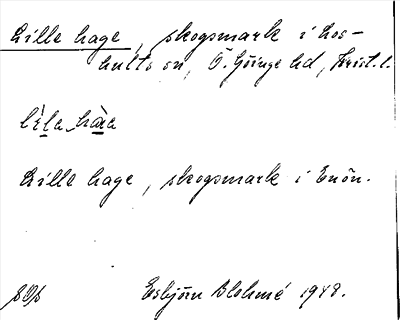 Lille hage, skogsmark i Los-
hults sn, Ö. Göinge hd, Krist. l.
Lille hage, skogsmark i Enön.
Esbjörn Blohmé 1948.